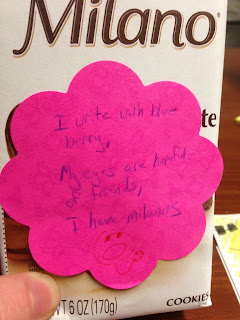 Milano
I write with blue
berry,
My eyes are hopeful
of friends,
I have milanos
WT 6 OZ (170g)
COOKIES